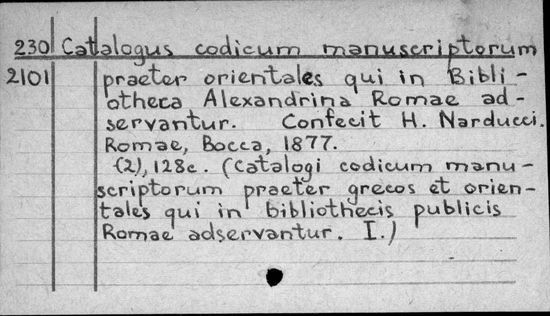 230 Catalogus codicum manuscriptorum
2101 praeter orientales qui in Bibli-
otheca Alexandrina Romae ad-
servantur. Confecit H. Narducci.
Romae, Bocca, 1877.
(2), 128c. (Catalogi codicum manu-
scriptorum praeter grecos et orien-
tales qui in bibliothecis publicis
Romae adservantur. I.)